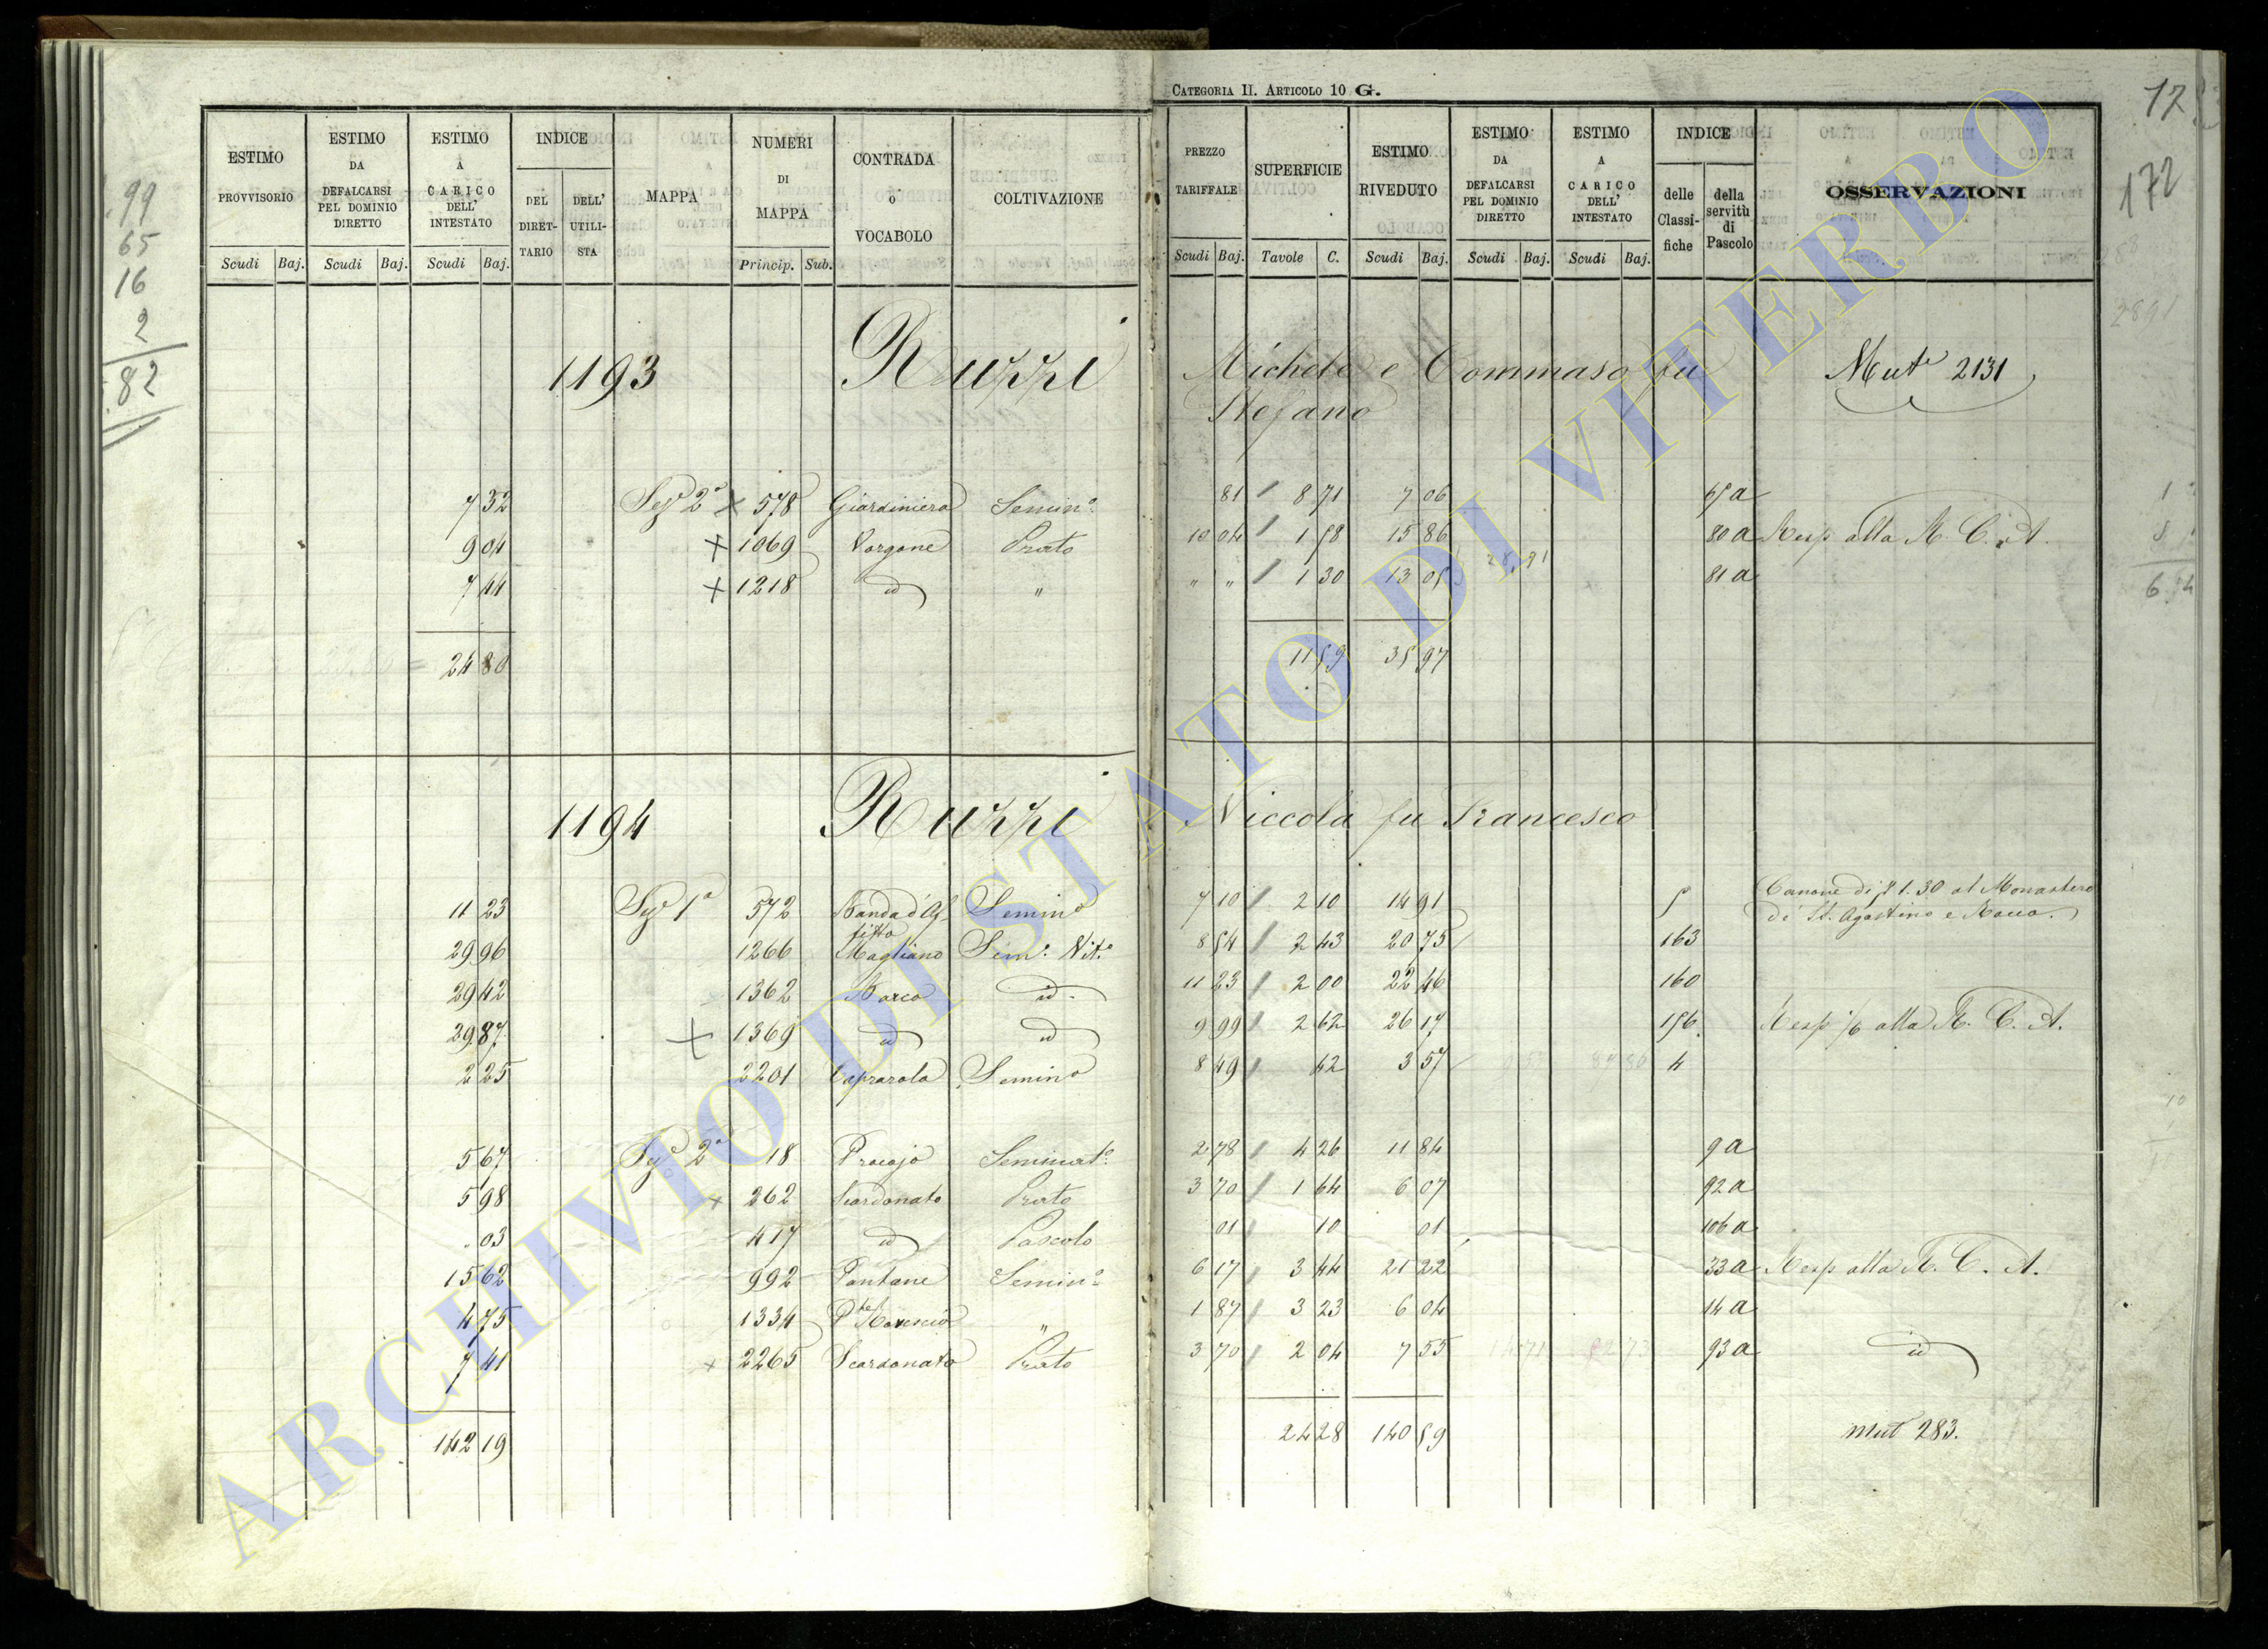 CATEGORIA II. ARTICOLO 10 G.
172
99
65
16
2
82
ESTIMO PROVVISORIO Scudi Baj.
ESTIMO DA DEFALCARSI PEL DOMINIO DIRETTO Scudi Baj.
ESTIMO A CARICO DELL' INTESTATO Scudi Baj.
INDICE DEL DIRETTARIO DELL' UTILISTA
MAPPA
NUMERI DI MAPPA Princip. Sub.
CONTRADA O VOCABOLO
COLTIVAZIONE
PREZZO TARIFFALE Scudi Baj.
SUPERFICIE Tavole C.
ESTIMO RIVEDUTO Scudi Baj.
ESTIMO DA DEFALCARSI PEL DOMINIO DIRETTO Scudi Baj.
ESTIMO A CARICO DELL' INTESTATO Scudi Baj.
INDICE delle Classifiche della servitù di Pascolo
OSSERVAZIONI
1193 Ruzzi Michele e Tommaso fu Stefano Mut.e 2131
7 32 Sez.e 2a x 578 Giardiniera Semin.o 81 8 71 7 06 65 a
9 04 x 1069 Vorgone Prato 10 04 1 58 15 86 80 a Resp alla R. C. A.
7 44 x 1218 id " " " 1 30 13 05 81 a
24 80 11 59 35 97
1194 Ruzzi Niccola fu Francesco
11 23 Sez.e 1a 572 Semin.o 7 10 2 10 14 91 5 Canone di 1.30 al Monastero di S. Agostino e Rocco.
29 96 1266 Magliano Sem.o Vit.o 8 54 2 43 20 75 163
29 42 1362 Barco id. 11 23 2 00 22 46 160
29 87 x 1369 id id 9 99 2 62 26 17 156 Resp alla R. C. A.
2 25 2201 Caprarola Semin.o 8 49 42 3 57 4
5 67 Sez.e 2a 18 Procojo Seminat.o 2 78 4 26 11 84 9 a
5 98 x 262 Scardonato Prato 3 70 1 64 6 07 92 a
03 417 id Pascolo 01 10 01 106 a
15 62 992 Pantane Semin.o 6 17 3 44 21 22 33 a Resp alla R. C. A.
4 75 1334 " 1 87 3 23 6 04 14 a
7 41 x 2265 Scardonato Prato 3 70 2 04 7 55 93 a id
142 19 24 28 140 59 Mut 283.
ARCHIVIO DI STATO DI VITERBO